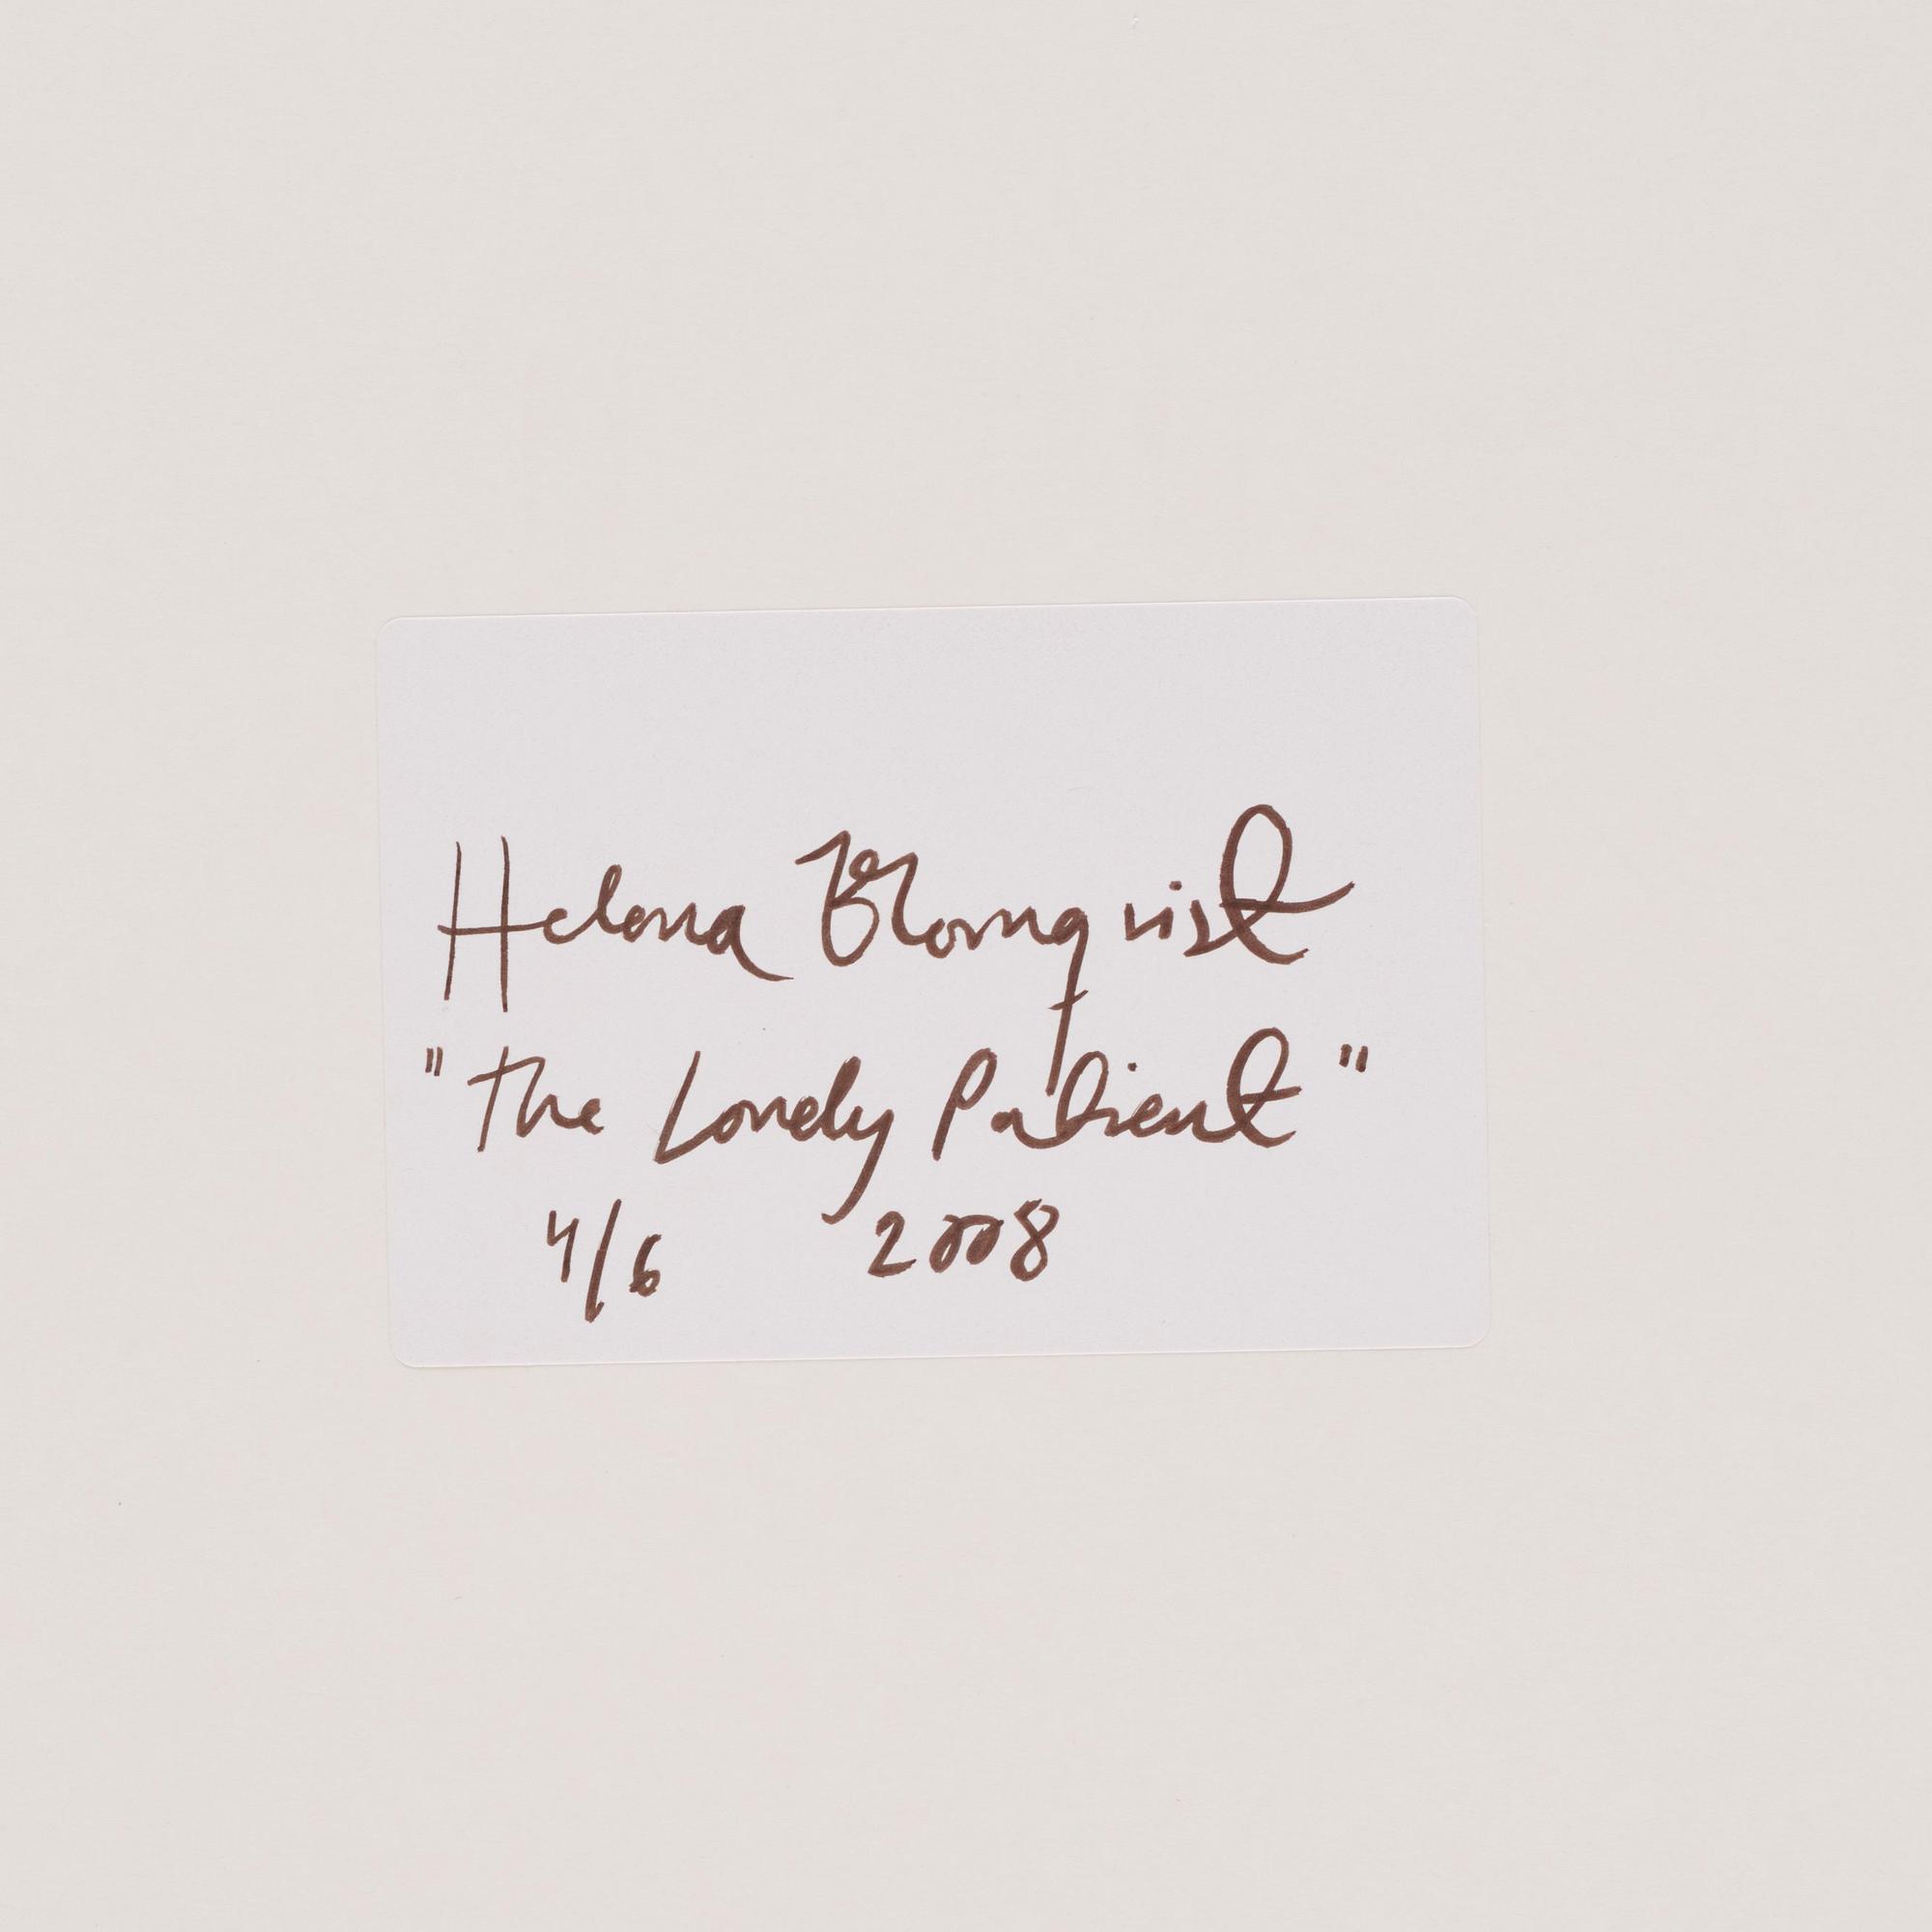 Helena Blomqvist
"The Lonely Patient"
4/6 2008